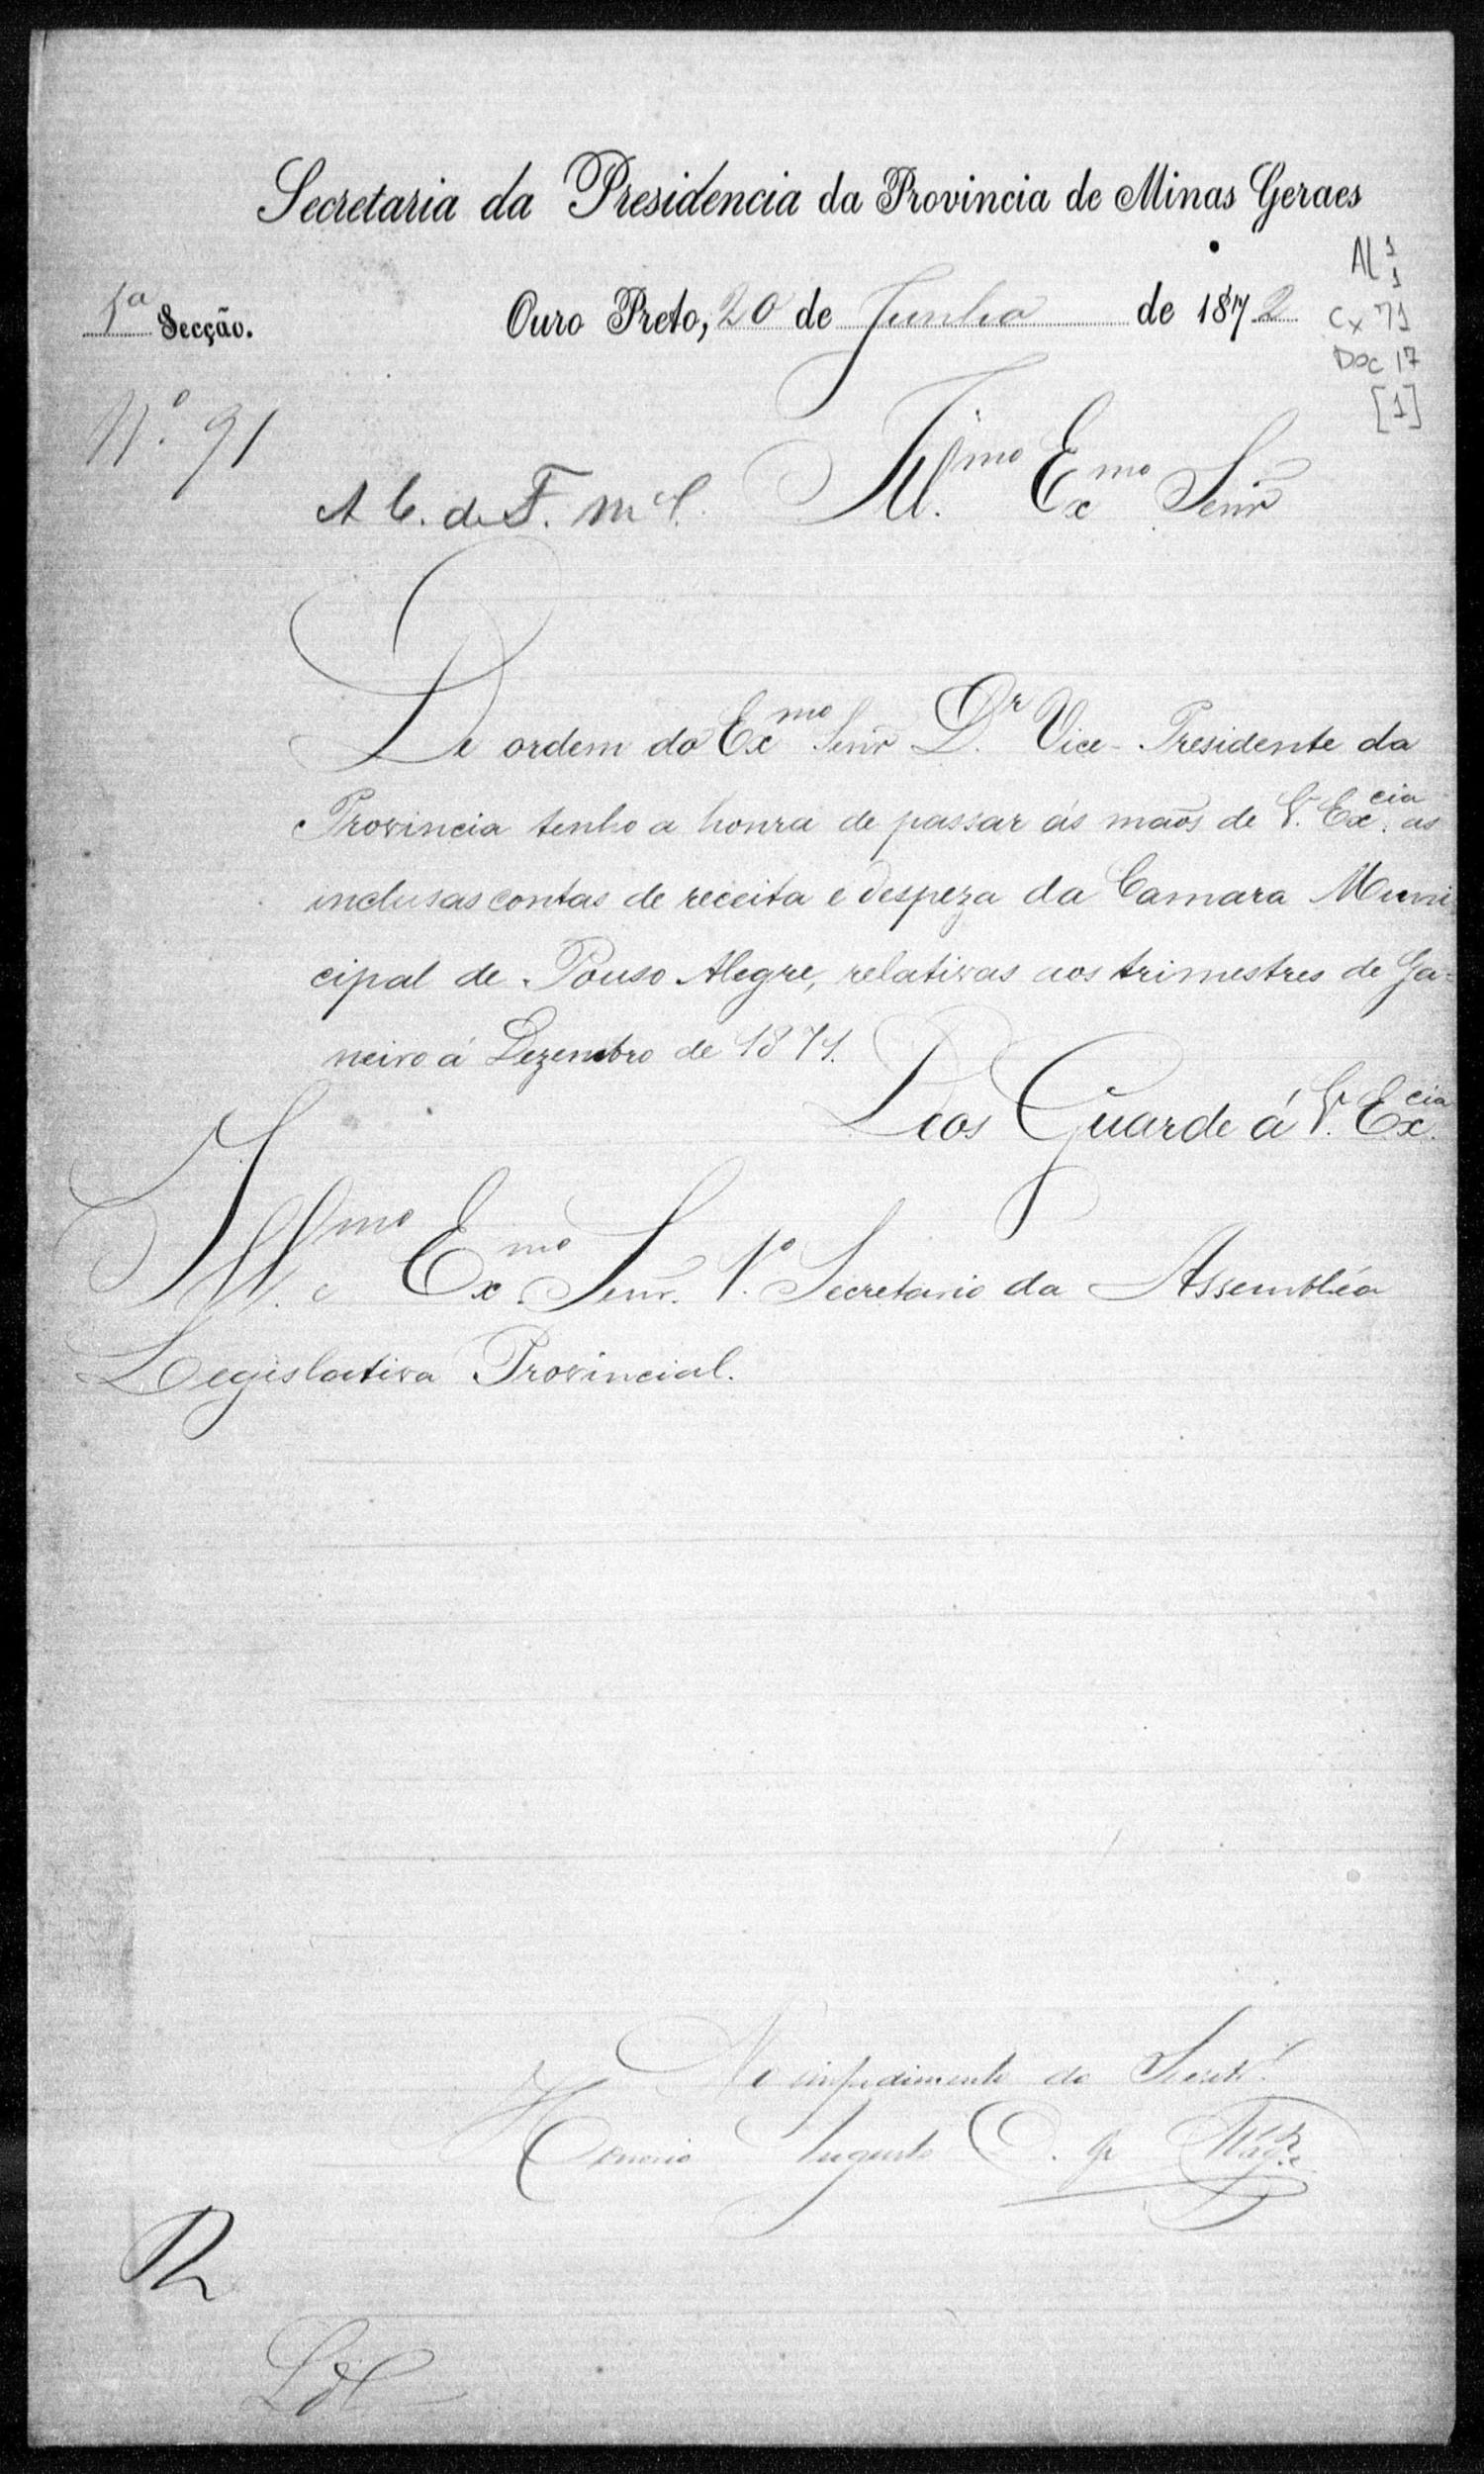 Secretaria da Presidencia da Provincia de Minas Geraes
Al 1
1
Cx 71
Doc 17
[1]
1ª Secção.
Ouro Preto, 20 de Junho de 1872
Nº. 91
Ill.mo Ex.mo Senr
A C. de F. M.
De ordem do Ex.mo Senr Dr. Vice-Presidente da
Provincia tenho a honra de passar ás mãos de V. Ex.cia as
inclusas contas de receita e despeza da Camara Muni
cipal de Pouso Alegre, relativas aos trimestres de Ja-
neiro á Dezembro de 1871.
Deos Guarde á V. Ex.cia
Ill.mo e Ex.mo Senr. 1º. Secretario da Assembléa
Legislativa Provincial.
No impedimento do Secretº.
Augusto